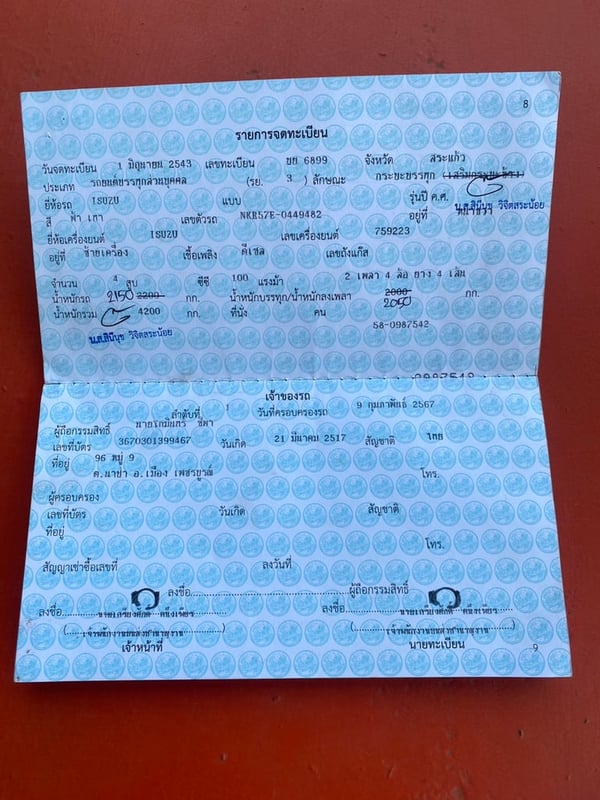 8
รายการจดทะเบียน
วันจดทะเบียน 1 มิถุนายน 2543 เลขทะเบียน บย 6899 จังหวัด สระแก้ว
ประเภท รถยนต์บรรทุกส่วนบุคคล (รย. 3 ) ลักษณะ กระบะบรรทุก (เสริมกระบะข้าง)
ยี่ห้อรถ ISUZU แบบ รุ่นปี ค.ศ.
น.ส.สินีนุช วิจิตสระน้อย
สี ฟ้า เทา เลขตัวรถ NKR57E-0449482 อยู่ที่
ยี่ห้อเครื่องยนต์ ISUZU เลขเครื่องยนต์ 759223
อยู่ที่ ซ้ายเครื่อง เชื้อเพลิง ดีเซล เลขถังแก๊ส
จำนวน 4 สูบ ซีซี 100 แรงม้า 2 เพลา 4 ล้อ ยาง 4 เส้น
น้ำหนักรถ 2150 2200 กก. น้ำหนักบรรทุก/น้ำหนักลงเพลา 2000 กก.
2050
น้ำหนักรวม 4200 กก. ที่นั่ง คน
58-0987542
น.ส.สินีนุช วิจิตสระน้อย
เจ้าของรถ
ลำดับที่ 1 วันที่ครอบครองรถ 9 กุมภาพันธ์ 2567
ผู้ถือกรรมสิทธิ์
เลขที่บัตร 3670301399467 วันเกิด 21 มีนาคม 2517 สัญชาติ ไทย
ที่อยู่ 96 หมู่ 9
ต.นาป่า อ.เมือง เพชรบูรณ์ โทร.
ผู้ครอบครอง
เลขที่บัตร วันเกิด สัญชาติ
ที่อยู่
โทร.
สัญญาเช่าซื้อเลขที่ ลงวันที่
ลงชื่อ ผู้ถือกรรมสิทธิ์
ลงชื่อ ลงชื่อ
เจ้าหน้าที่ นายทะเบียน
9